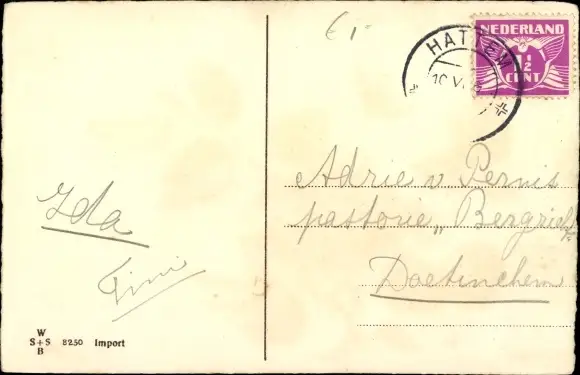 €1-
NEDERLAND
1½
CENT
HATTEM
10 V
Adrie v Pernis
pastorie „ Bergzich
Doetinchem
Ida
Fini
W
S+S 8250 Import
B